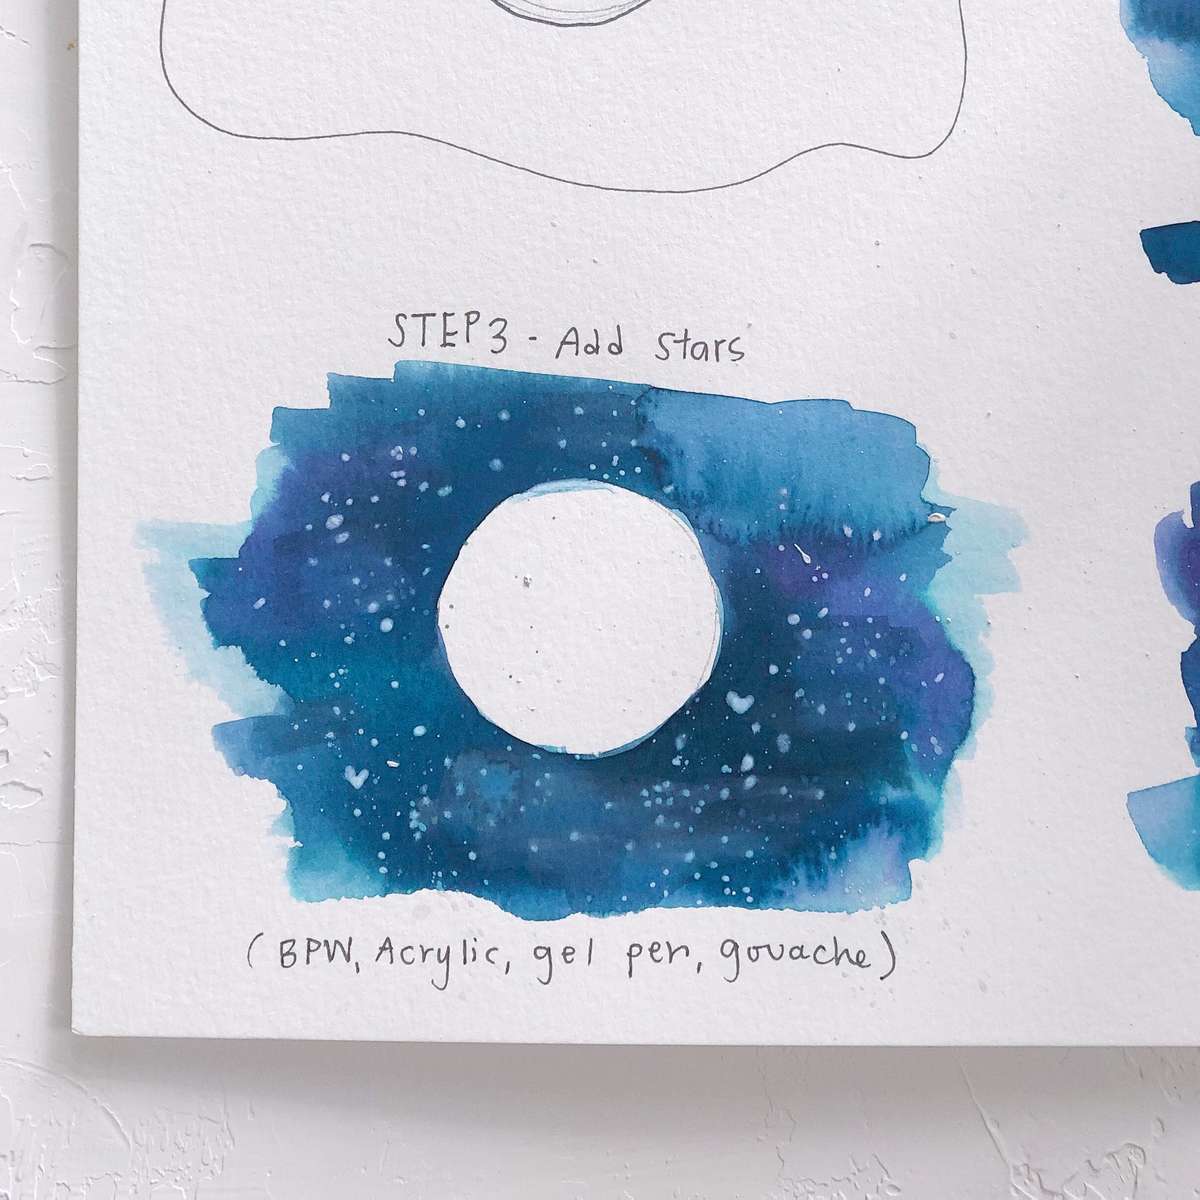 STEP 3 - Add stars
(BPW, Acrylic, gel pen, gouache)